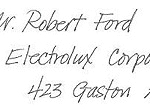 Mr. Robert Ford
Electrolux
423 Gaston